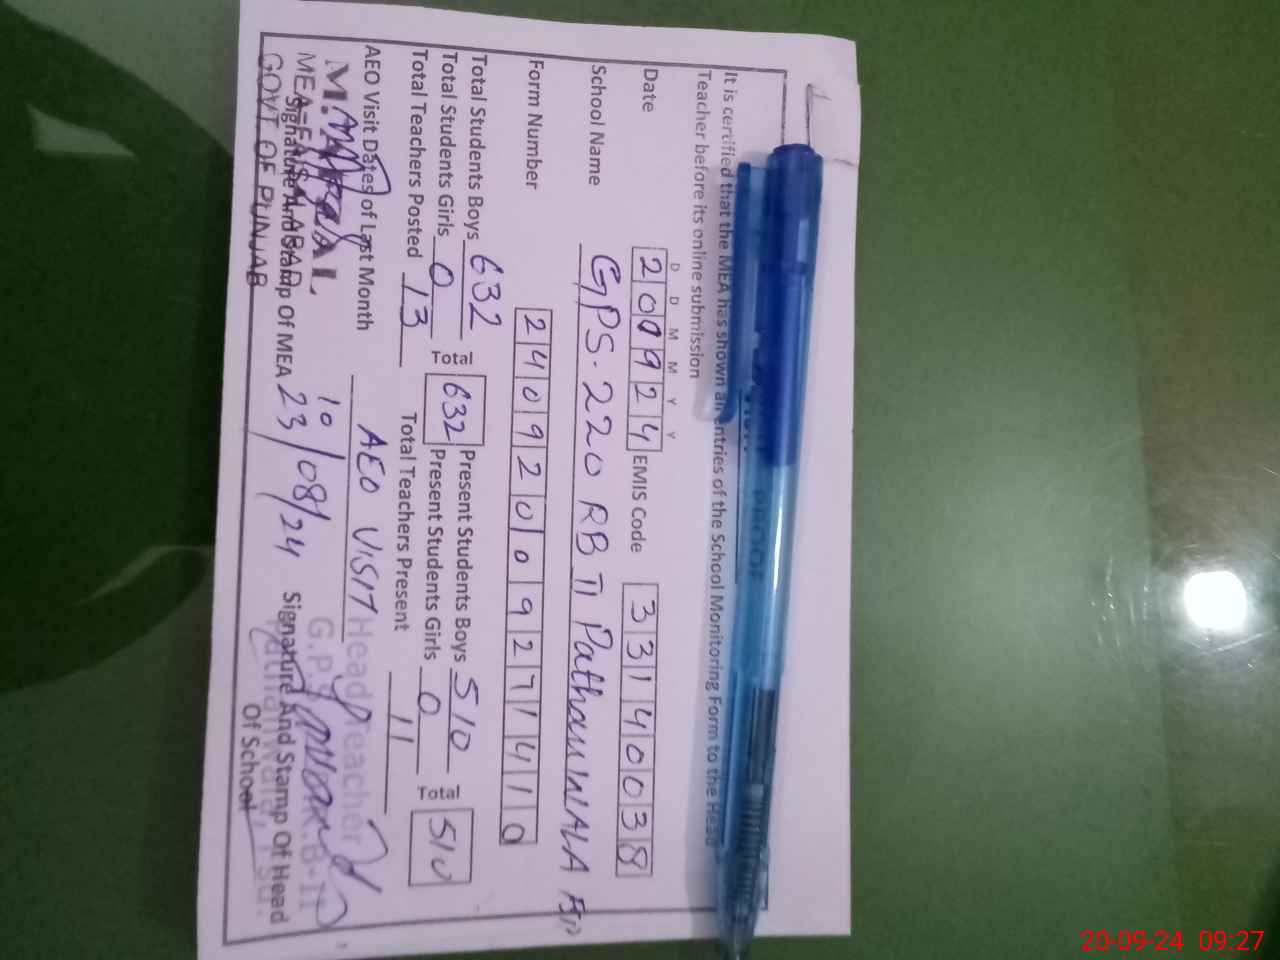 VISIT PROOF
It is certified that the MEA has shown all entries of the School Monitoring Form to the Head
Teacher before its online submission
D D M M Y Y
Date 200924 EMIS Code 33140038
School Name GPS. 220 RB II PathanWALA FSD
Form Number 24092009271410
Total Students Boys 632 Total 632 Present Students Boys 510 Total 510
Total Students Girls 0 Present Students Girls 0
Total Teachers Posted 13 Total Teachers Present 11
AEO Visit Dates of Last Month AEO VISIT
10
23/08/24
MEA-FAISALABAD
GOVT OF PUNJAB
Signature And Stamp Of MEA
Head Teacher
Signature And Stamp Of Head
Of School
20-09-24 09:27